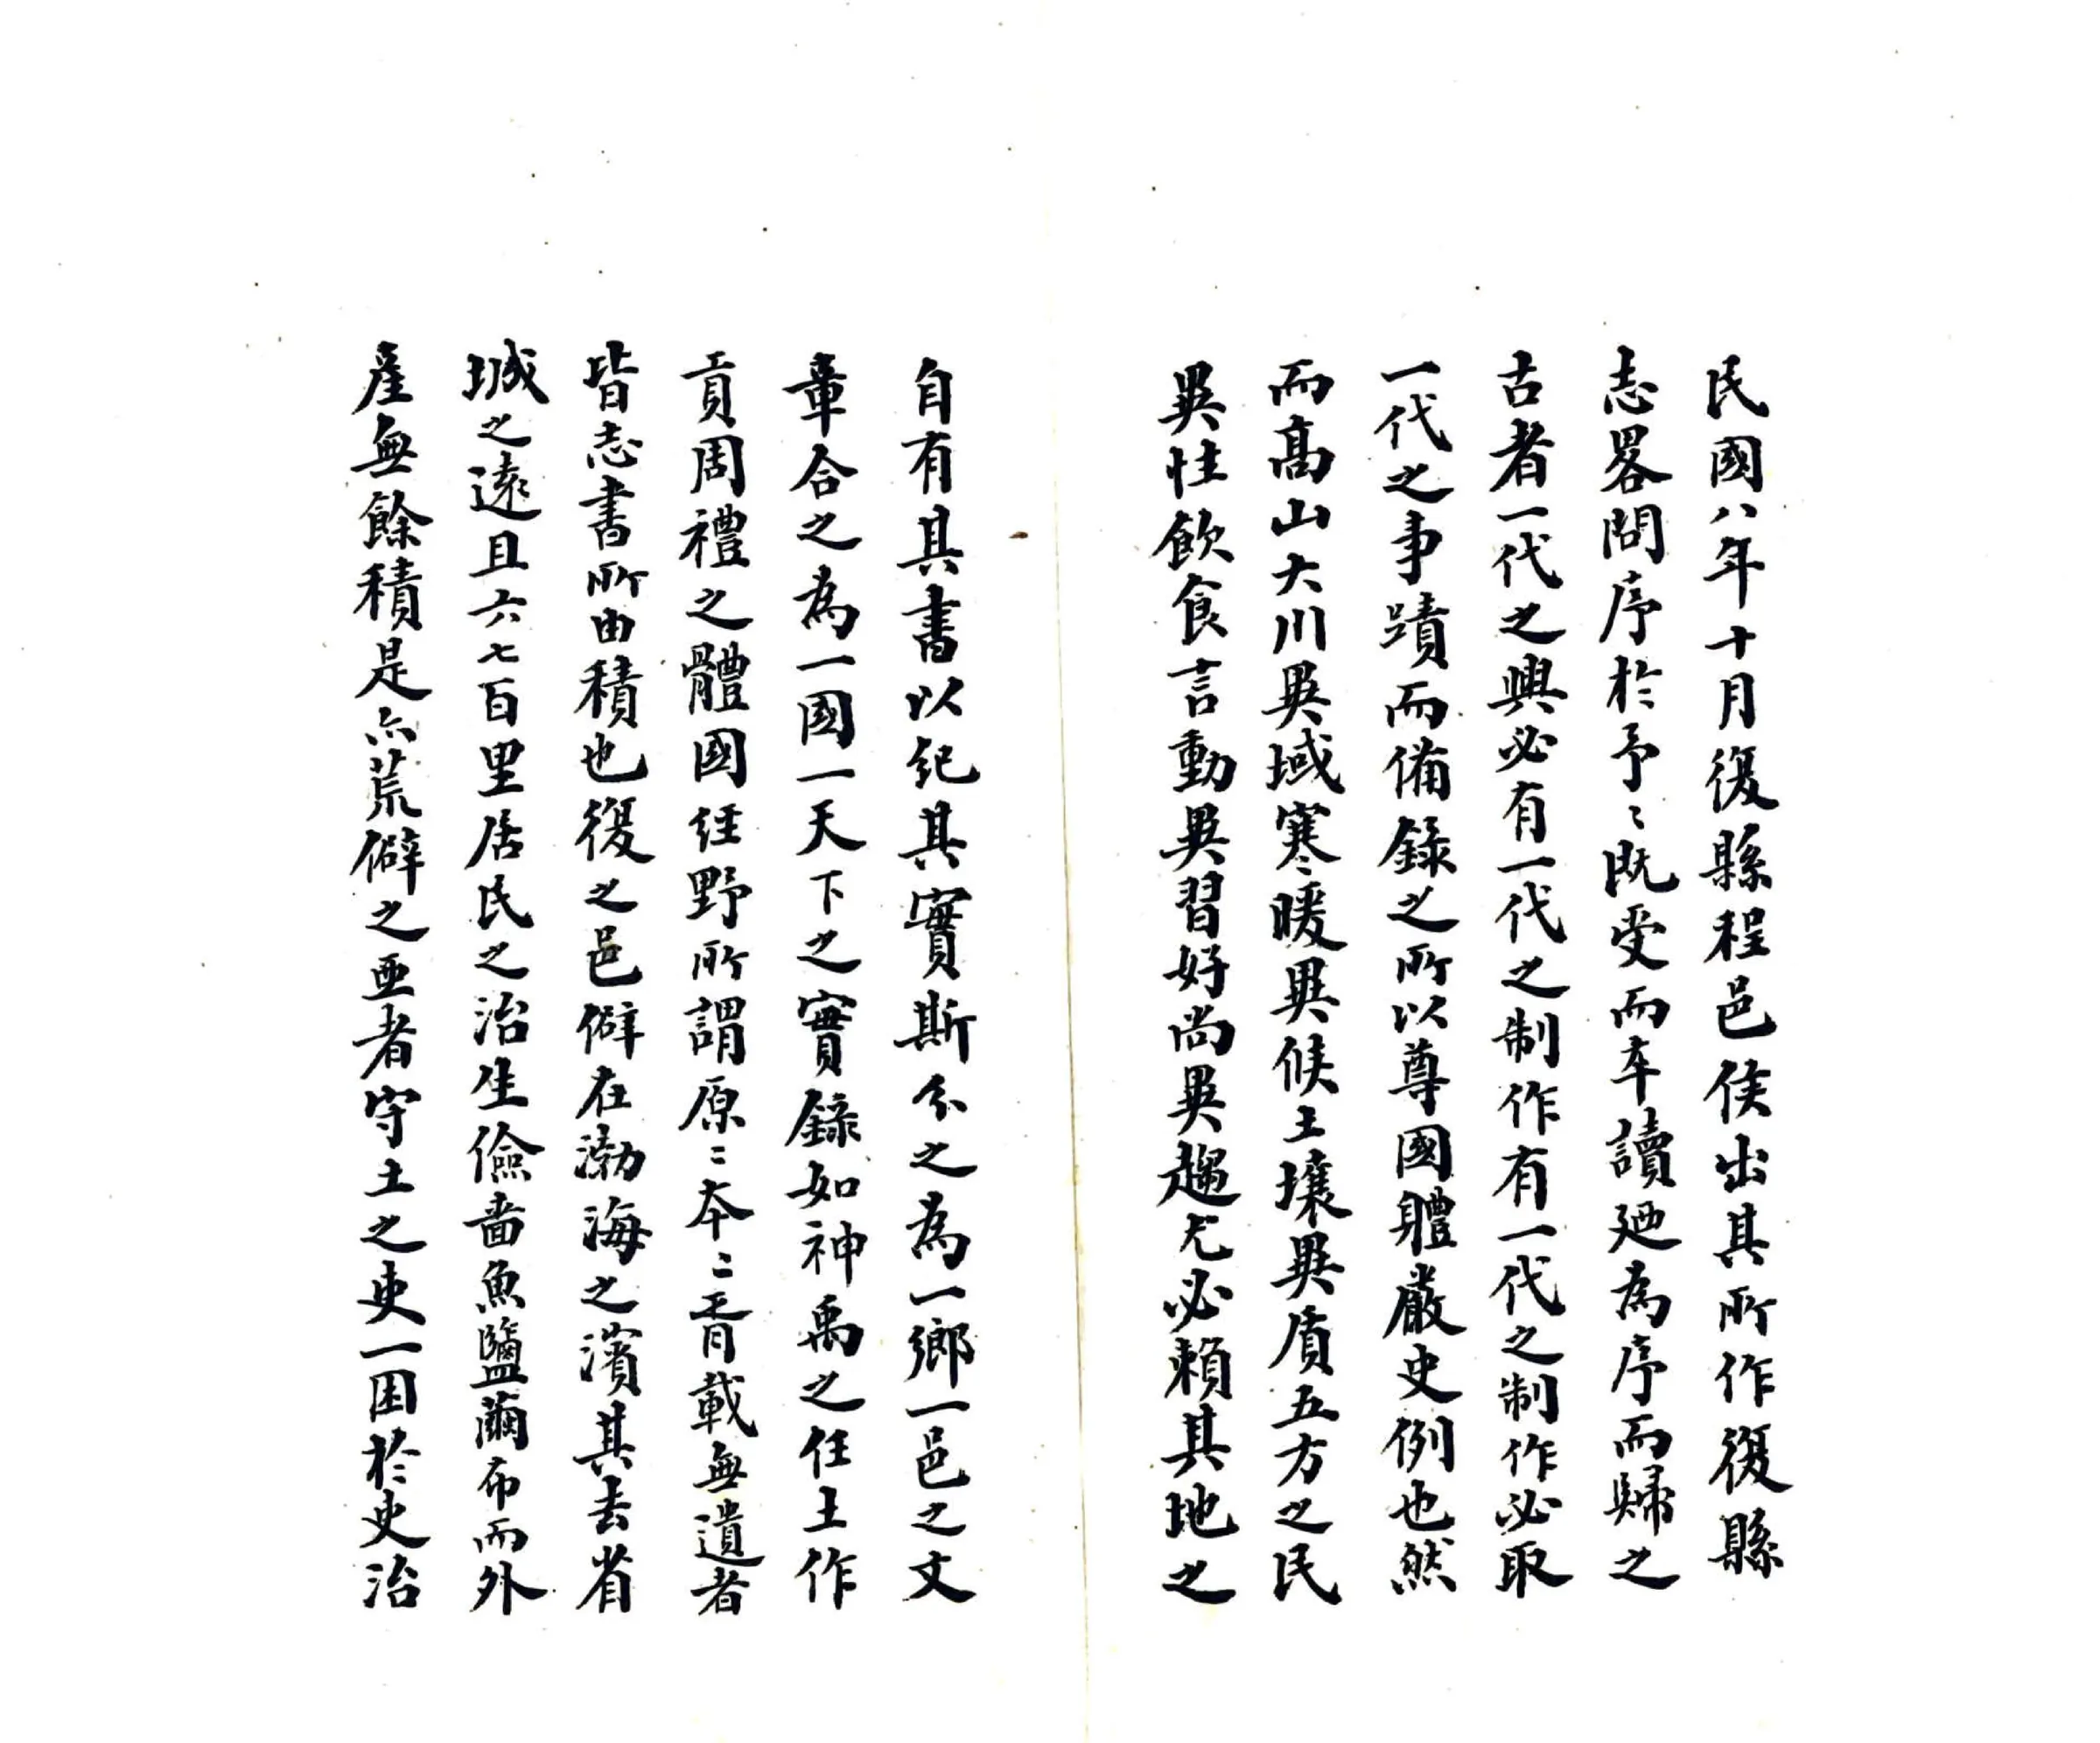 民國八年十月復縣程邑侯出其所作復縣
志畧問序於予〻既受而卒讀廼為序而歸之
古者一代之興必有一代之制作有一代之制作必取
一代之事蹟而備錄之所以尊國體嚴史例也然
而高山大川異域寒暖異候土壤異質五方之民
異性飲食言動異習好尚異趨尤必賴其地之
自有其書以紀其實斯分之為一鄉一邑之文
章合之為一國一天下之實錄如神禹之任土作
貢周禮之體國經野所謂原〻本〻胥載無遺者
皆志書所由積也復之邑僻在渤海之濱其去省
城之遠且六七百里居民之治生儉嗇魚鹽繭布而外
產無餘積是亦荒僻之亜者守土之吏一困於吏治